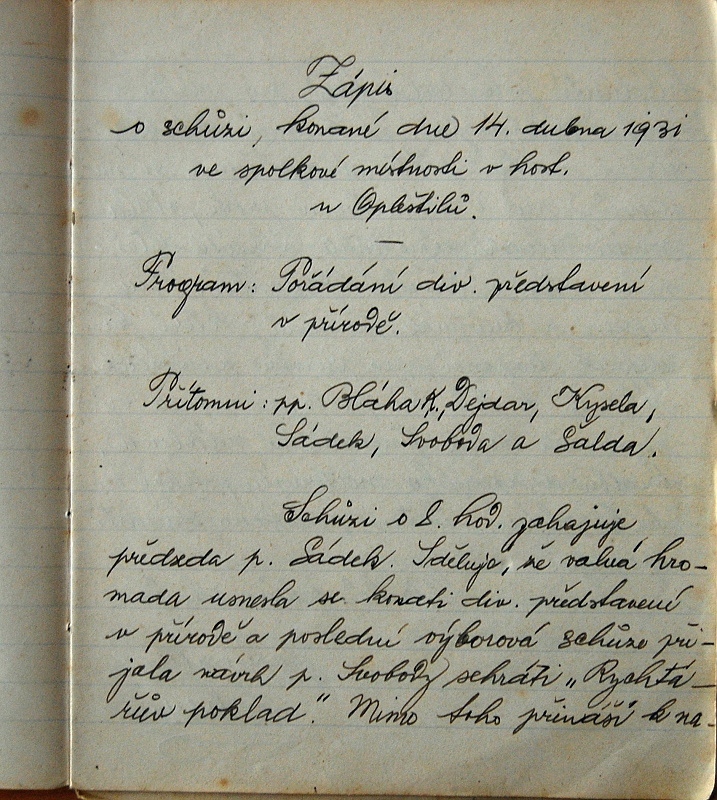 Zápis
o schůzi, konané dne 14. dubna 1931
ve spolkové místnosti v host.
u Opleštilů.
Program: Pořádání div. představení
v přírodě.
Přítomni: pp. Bláha K., Dejdar, Kysela,
Sádek, Svoboda a Šalda.
Schůzi o 8. hod. zahajuje
předseda p. Sádek. Sděluje, že valná hro-
mada usnesla se konati div. představení
v přírodě a poslední výborová schůze při-
jala návrh p. Svobody sehráti „Rychtá-
řův poklad". Mimo toho přináší k ná-